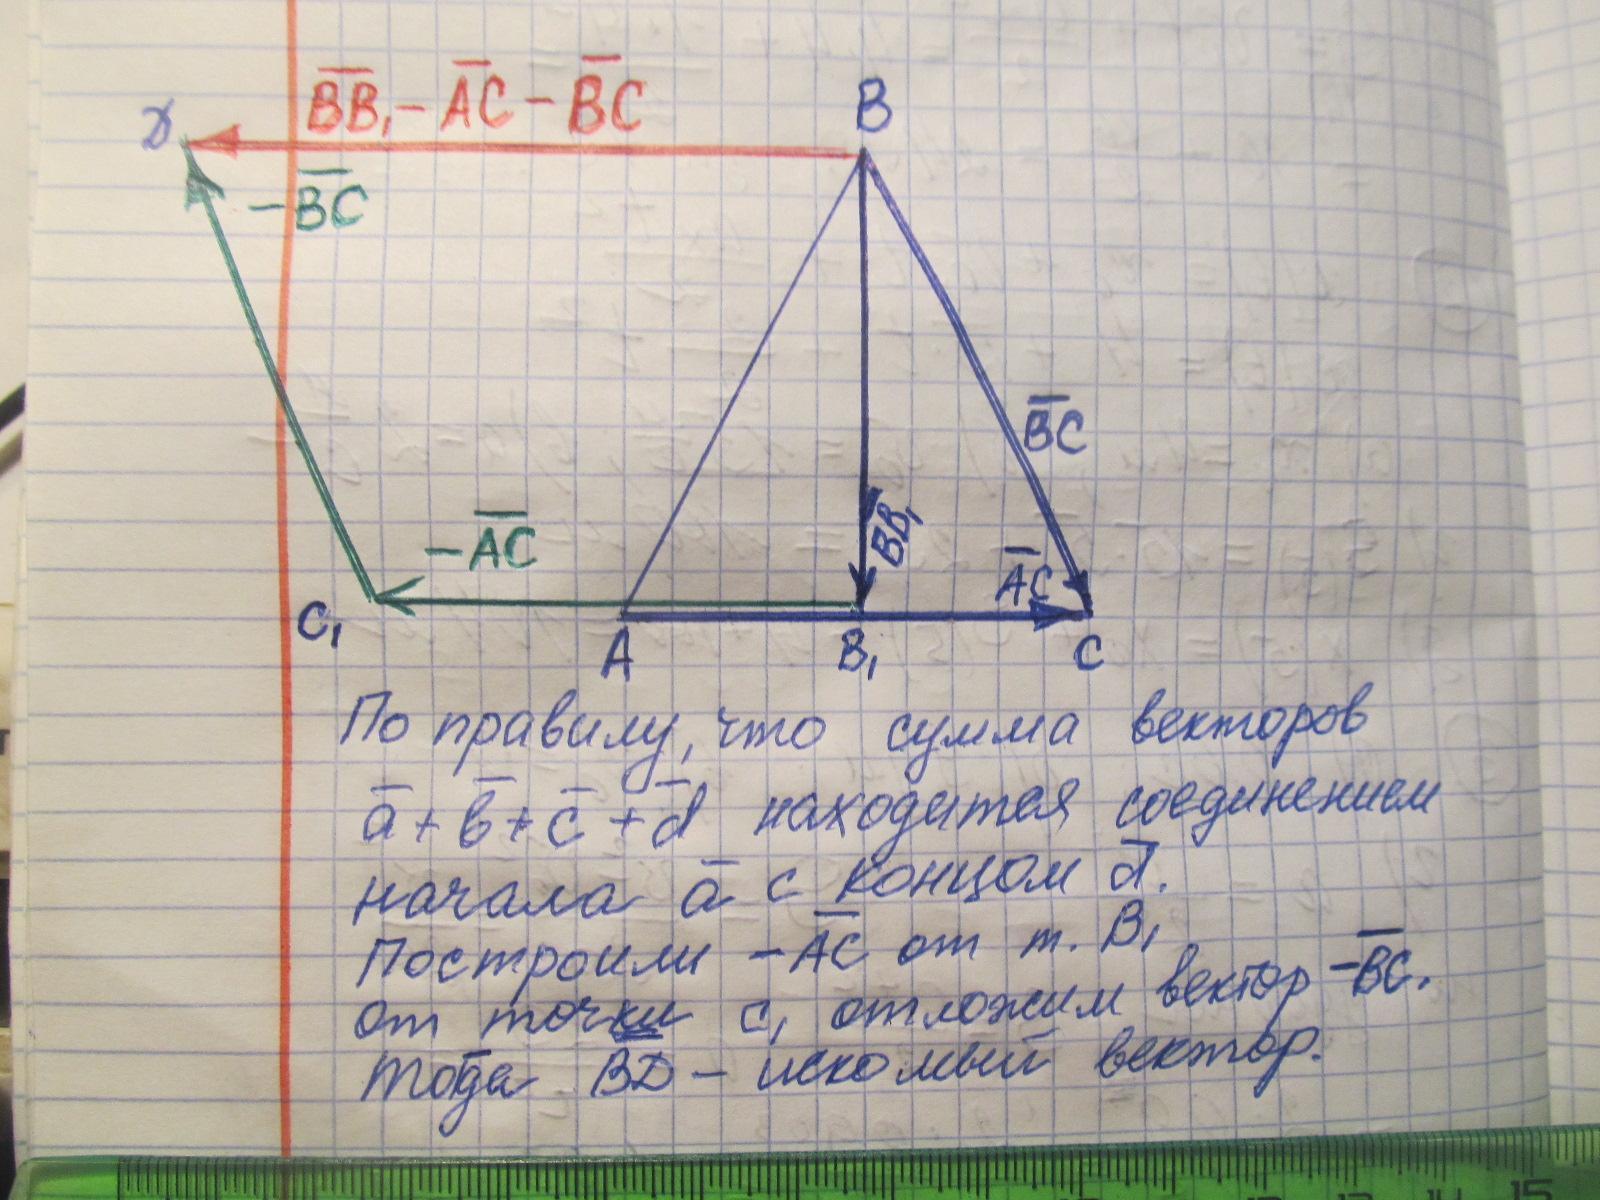 D
B̅B̅₁ - A̅C̅ - B̅C̅
B
-B̅C̅
B̅C̅
-A̅C̅
BB₁
A̅C̅
C₁
A
B₁
C
По правилу, что сумма векторов
a̅ + b̅ + c̅ + d̅ находится соединением
начала a̅ с концом d̅.
Построили -A̅C̅ от т. B₁
от точки C₁ отложим вектор -B̅C̅.
Тогда B̅D̅ - искомый вектор.
13 14 15